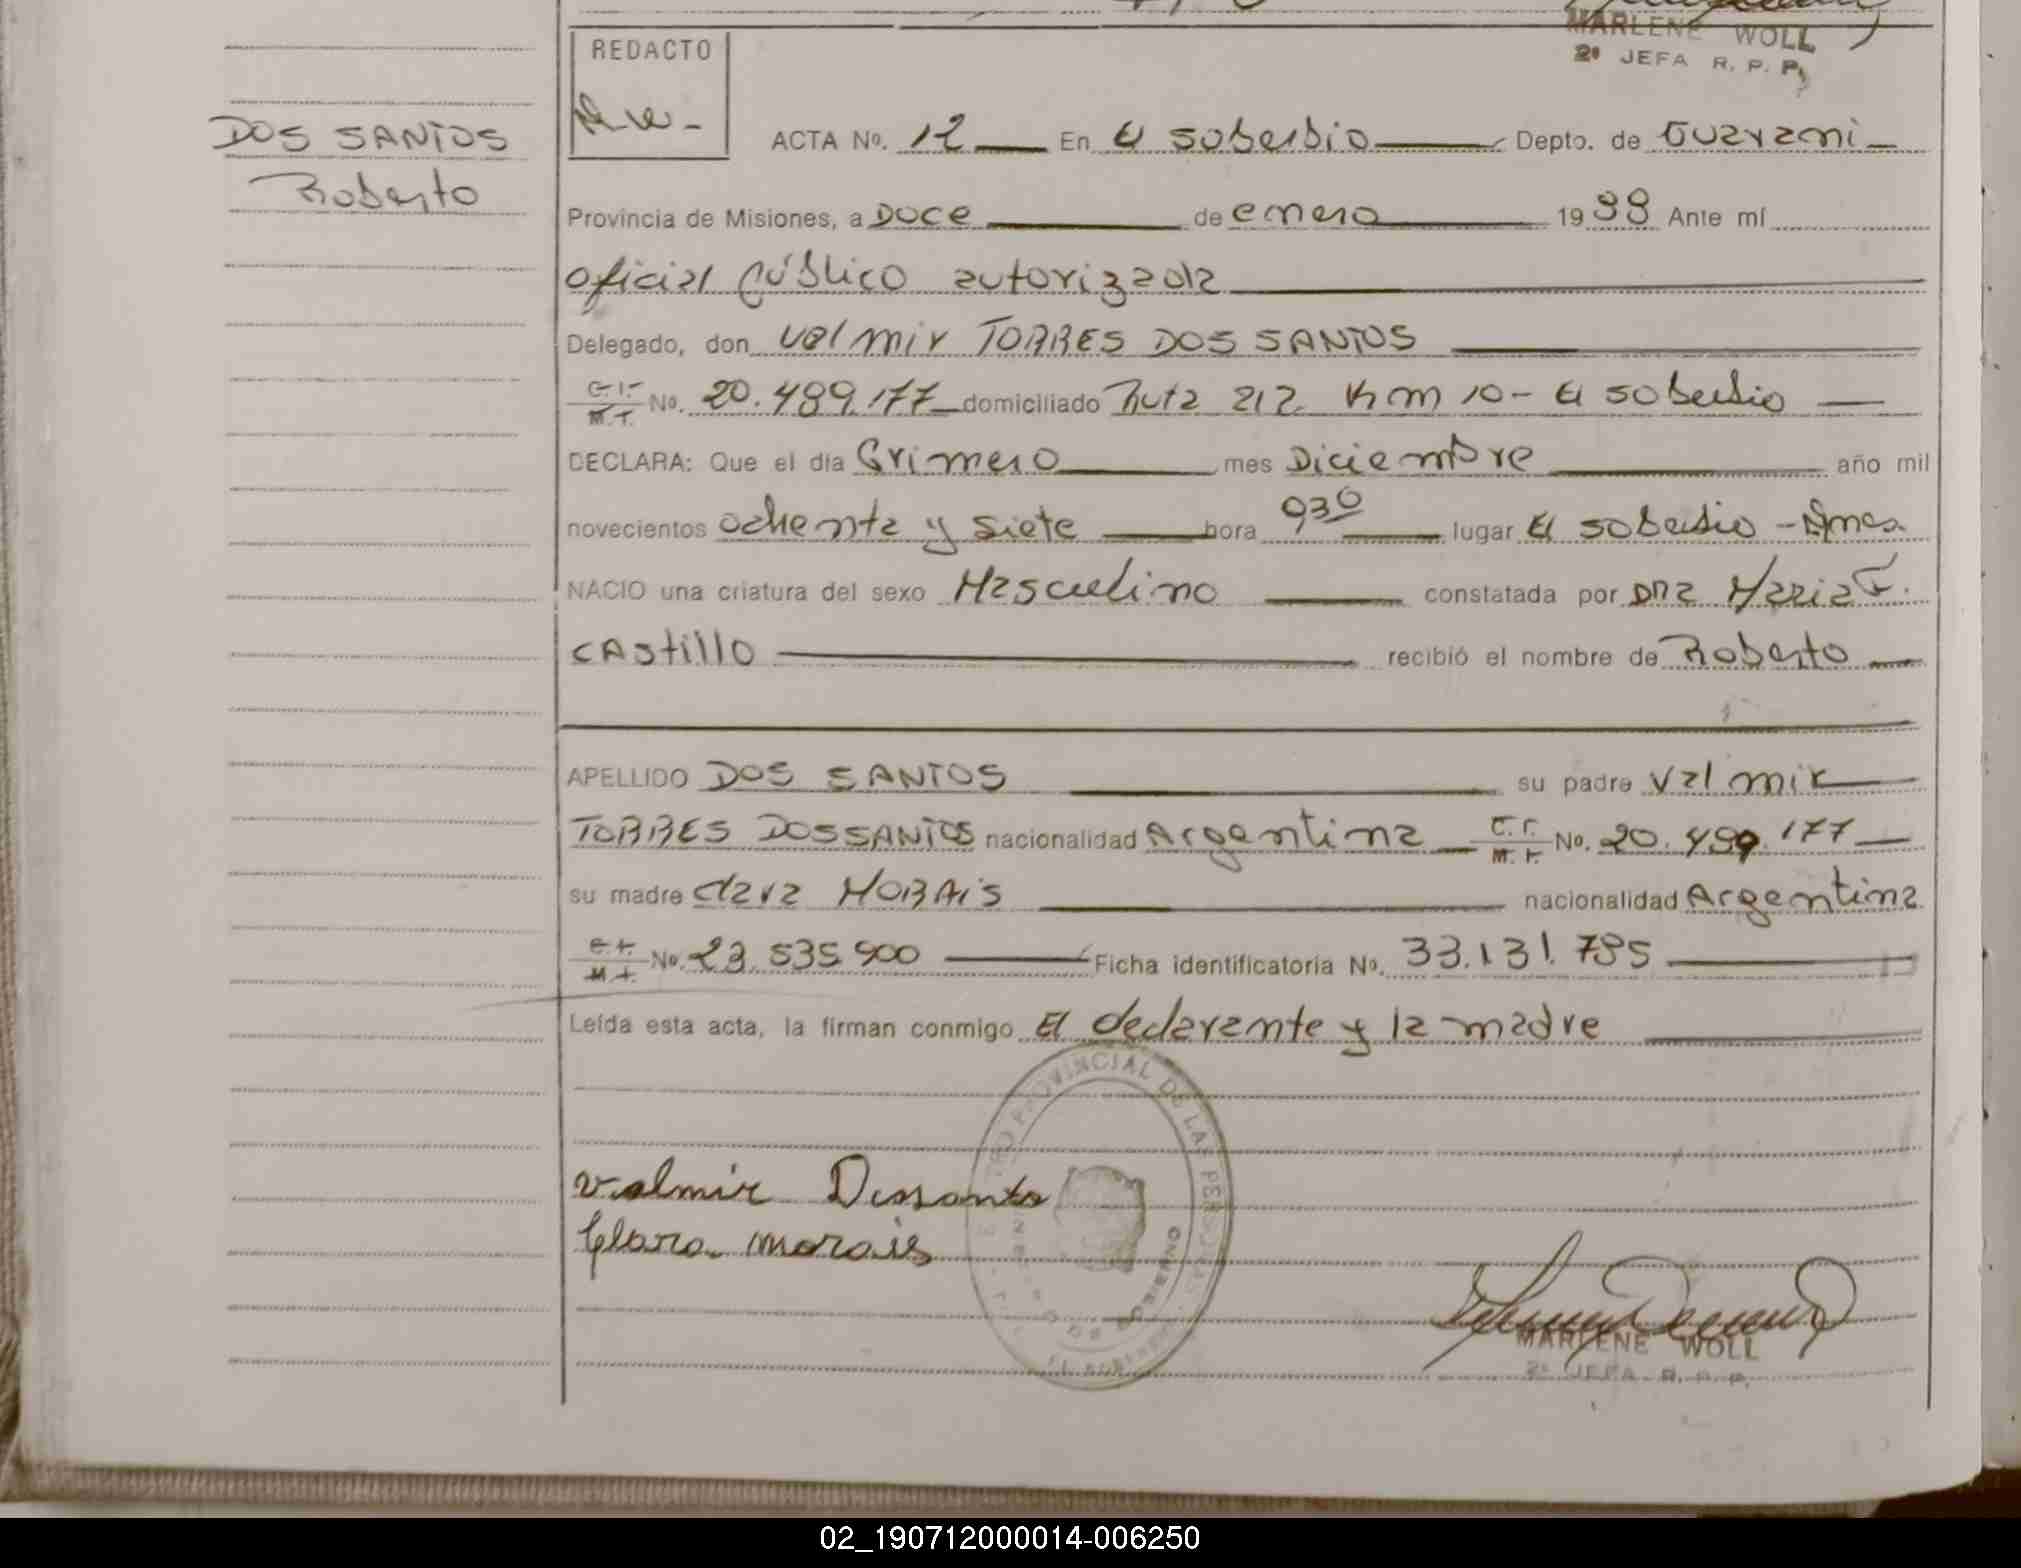 MARLENE WOLL
2º JEFA R. P. P.
REDACTO
DOS SANTOS
Roberto
ACTA No. 12 En El soberbio Depto. de Guarani
Provincia de Misiones, a Doce de enero 1988 Ante mí
oficial público autorizada
Delegado, don Valmir TORRES DOS SANTOS
C.I. M.I. No. 20.489.177 domiciliado Ruta 212 Km 10 - El soberbio
DECLARA: Que el día Primero mes Diciembre año mil
novecientos ochenta y siete hora 930 lugar El soberbio - Mnes.
NACIO una criatura del sexo Masculino constatada por Dña Maria F.
CAStillo recibió el nombre de Roberto
APELLIDO DOS SANTOS su padre Valmir
TORRES DOS SANTOS nacionalidad Argentina C.I. M.I. No. 20.489.177
su madre Clara MORAiS nacionalidad Argentina
C.I. M.I. No. 23.535.900 Ficha identificatoria No. 33.131.795
Leída esta acta, la firman conmigo El declarante y la madre
PROVINCIAL DE LAS PERSONAS
DE GOBIERNO
Valmir Dossanto
Clara morais
MARLENE WOLL
2º JEFA R. P. P.
02_190712000014-006250